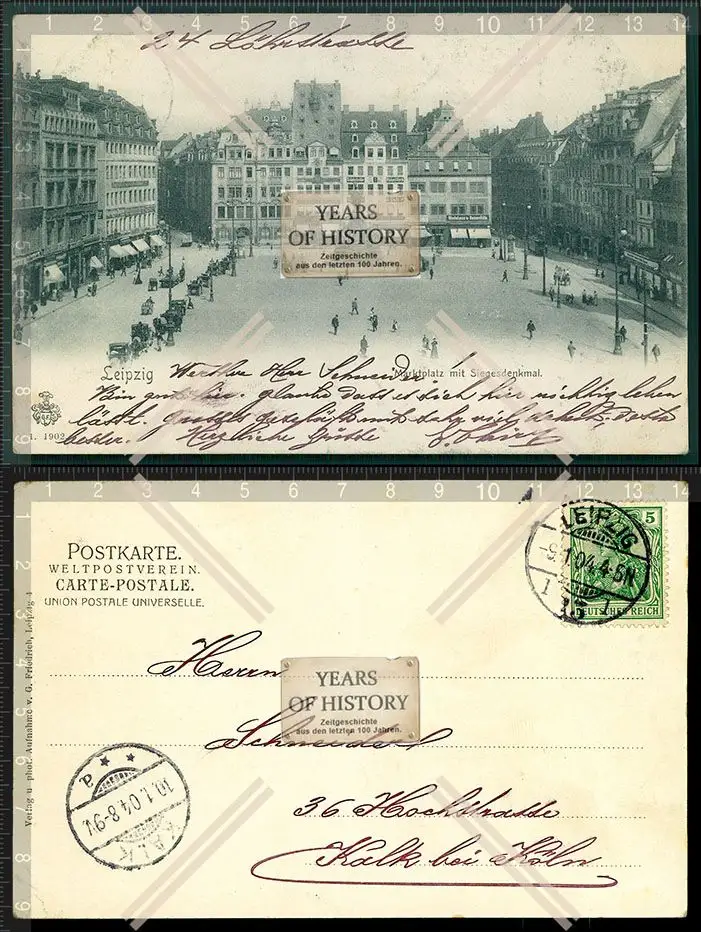 1 2 3 4 5 6 7 8 9 10 11 12 13 14
24 Löhrstrasse
YEARS
OF HISTORY
Zeitgeschichte
aus den letzten 100 Jahren.
Leipzig
Marktplatz mit Siegesdenkmal.
Werther Herr
Bin gut hier. glaube dass es sich hier richtig leben
lässt. sehr viel
besser. Herzliche Grüsse
1902
1 2 3 4 5 6 7 8 9 10 11 12 13 14
POSTKARTE.
WELTPOSTVEREIN.
CARTE-POSTALE.
UNION POSTALE UNIVERSELLE.
LEIPZIG
1.04.4-5N
1 1
5
DEUTSCHES REICH
Herrn
YEARS
OF HISTORY
Zeitgeschichte
aus den letzten 100 Jahren.
36 Hochstrasse
Kalk bei Köln
10.1.04.8-9V.
KALK
Verlag u. phot. Aufnahme v. G. Friedrich, Leipzig 1